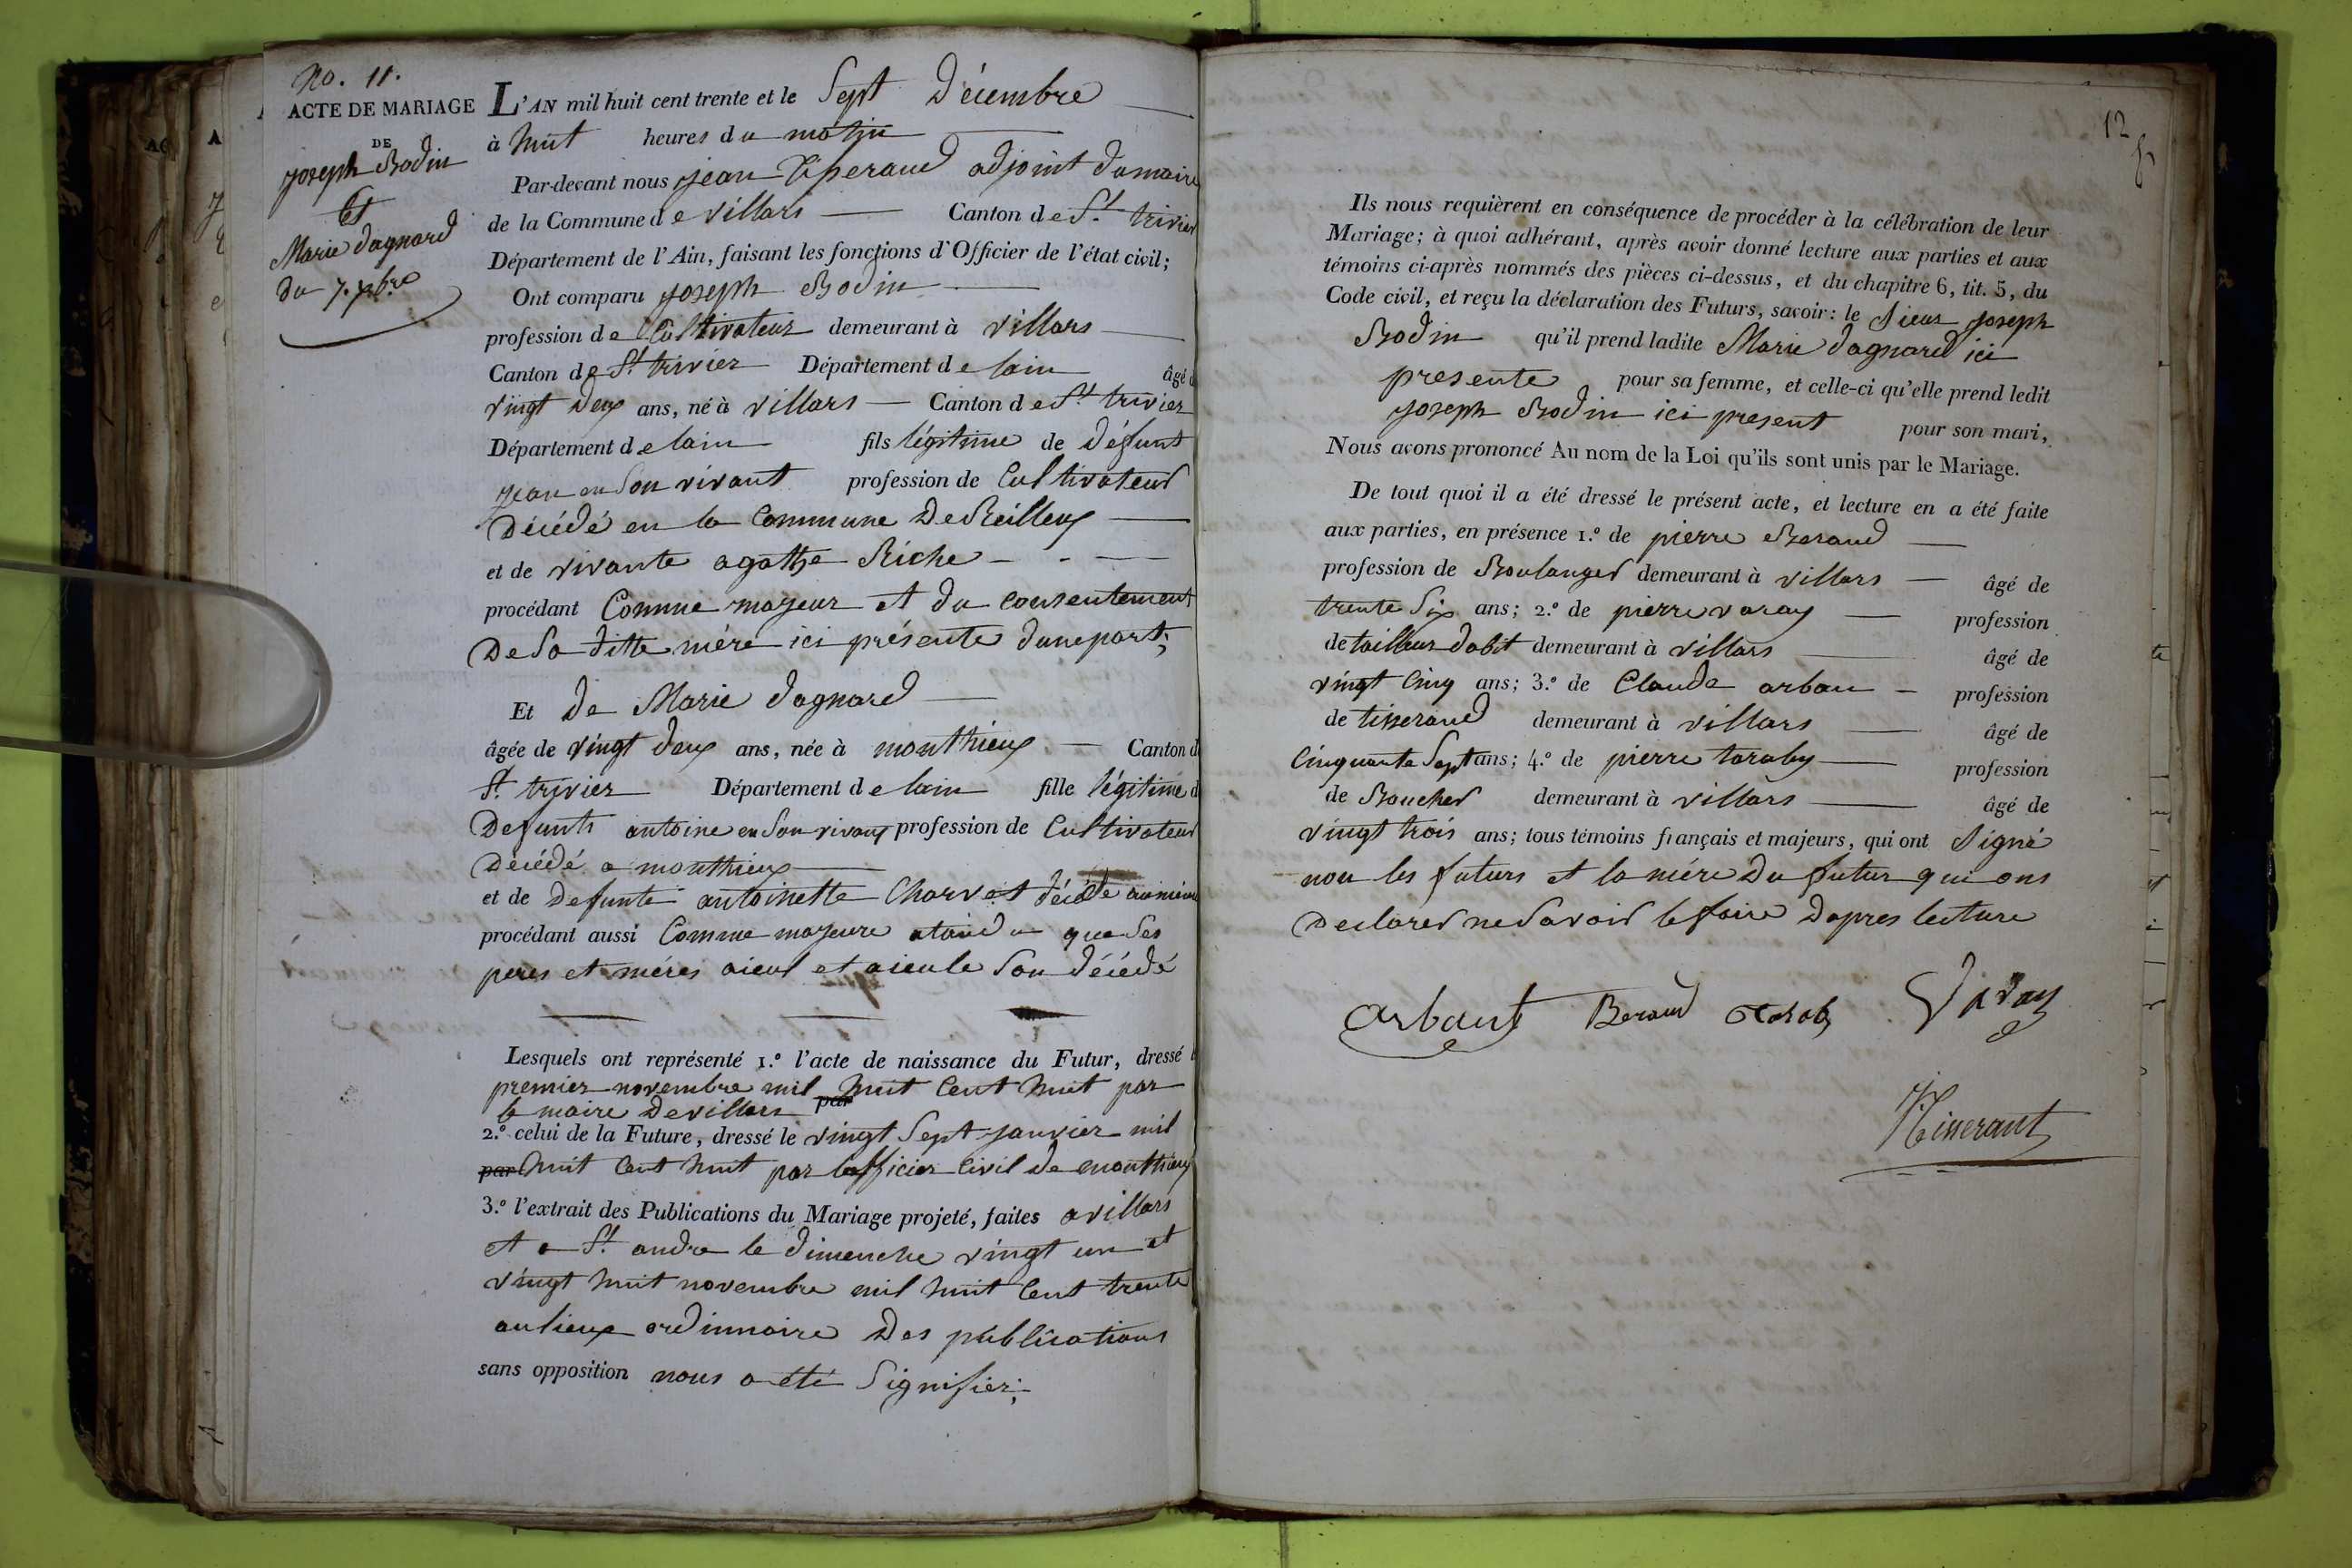 No. 11.
ACTE DE MARIAGE
DE
joseph Bodin
Et
Marie dagnard
du 7. xbre
L'AN mil huit cent trente et le Sept Décembre
à huit heures du matin
Par-devant nous jean adjoint du maire
de la Commune de villars Canton de St. trivier
Département de l'Ain, faisant les fonctions d'Officier de l'état civil;
Ont comparu joseph Bodin
profession de Cultivateur demeurant à villars
Canton de St. trivier Département de lain âgé d
vingt deux ans, né à villars Canton de St. trivier
Département de lain fils légitime de défunt
jean en Son vivant profession de Cultivateur
Décédé en la Commune De Reilleux
et de vivante agathe Riche
procédant Comme majeur et du consentement
De Sa ditte mére ici présente dune part;
Et de Marie dagnard
âgée de vingt deux ans, née à monthieux Canton d
St. trivier Département de lain fille légitime d
Defunts antoine en Son vivant profession de Cultivateur
Décédé a monthieux
et de Defunte antoinette Charvet décéde au même
procédant aussi Comme majeure atandu que Ses
peres et méres aieul et aieule Son décédé
Lesquels ont représenté 1.º l'acte de naissance du Futur, dressé l
premier novembre mil huit Cent huit par
le maire De villars par
2.º celui de la Future, dressé le vingt Sept janvier mil
par huit Cent huit par lofficier Civil de monthieux
3.º l'extrait des Publications du Mariage projeté, faites a villars
et a St. andre le dimenche vingt un et
vingt huit novembre mil huit Cent trente
au lieux ordinnaire Des publications
sans opposition nous a été Signifier;
12
Ils nous requièrent en conséquence de procéder à la célébration de leur
Mariage; à quoi adhérant, après avoir donné lecture aux parties et aux
témoins ci-après nommés des pièces ci-dessus, et du chapitre 6, tit. 5, du
Code civil, et reçu la déclaration des Futurs, savoir: le Sieur joseph
Bodin qu'il prend ladite Marie dagnard ici
presente pour sa femme, et celle-ci qu'elle prend ledit
joseph Bodin ici present pour son mari,
Nous avons prononcé Au nom de la Loi qu'ils sont unis par le Mariage.
De tout quoi il a été dressé le présent acte, et lecture en a été faite
aux parties, en présence 1.º de pierre Beraud
profession de Boulanger demeurant à villars âgé de
trente Six ans; 2.º de pierre varay profession
de tailleur dabit demeurant à villars âgé de
vingt Cinq ans; 3.º de Claude arban profession
de tisserand demeurant à villars âgé de
Cinquante Sept ans; 4.º de pierre taraby profession
de Boucher demeurant à villars âgé de
vingt trois ans; tous témoins français et majeurs, qui ont Signé
non les futurs et la mére Du futur qui ons
Declarer ne Savoir le faire Dapres lecture
Arbant Beraud Varay
Tisserant